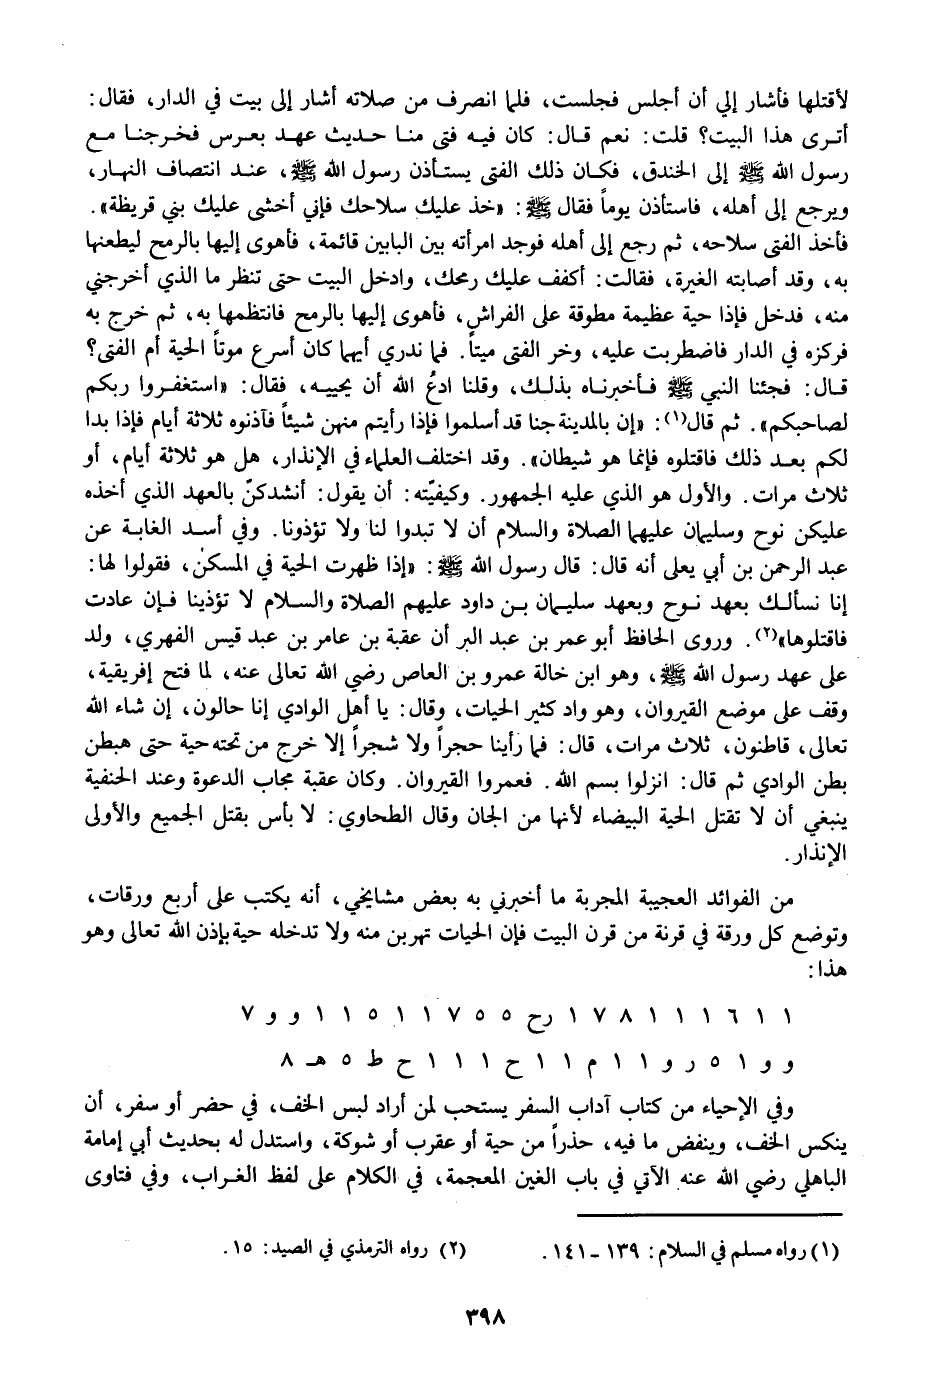 لأقتلها فأشار إلي أن أجلس فجلست، فلما انصرف من صلاته أشار إلى بيت في الدار، فقال:
أترى هذا البيت؟ قلت: نعم قال: كان فيه فتى منا حديث عهد بعرس فخرجنا مع
رسول الله ﷺ إلى الخندق، فكان ذلك الفتى يستأذن رسول الله ﷺ، عند انتصاف النهار،
ويرجع إلى أهله، فاستأذن يوماً فقال ﷺ: «خذ عليك سلاحك فإني أخشى عليك بني قريظة».
فأخذ الفتى سلاحه، ثم رجع إلى أهله فوجد امرأته بين البابين قائمة، فأهوى إليها بالرمح ليطعنها
به، وقد أصابته الغيرة، فقالت: أكفف عليك رمحك، وادخل البيت حتى تنظر ما الذي أخرجني
منه، فدخل فإذا حية عظيمة مطوقة على الفراش، فأهوى إليها بالرمح فانتظمها به، ثم خرج به
فركزه في الدار فاضطربت عليه، وخر الفتى ميتاً. فما ندري أيهما كان أسرع موتاً الحية أم الفتى؟
قال: فجئنا النبي ﷺ فأخبرناه بذلك، وقلنا ادعُ الله أن يحييه، فقال: «استغفروا ربكم
لصاحبكم». ثم قال(١): «إن بالمدينة جنا قد أسلموا فإذا رأيتم منهن شيئاً فآذنوه ثلاثة أيام فإذا بدا
لكم بعد ذلك فاقتلوه فإنما هو شيطان». وقد اختلف العلماء في الإنذار، هل هو ثلاثة أيام، أو
ثلاث مرات. والأول هو الذي عليه الجمهور. وكيفيّته: أن يقول: أنشدكنّ بالعهد الذي أخذه
عليكن نوح وسليمان عليهما الصلاة والسلام أن لا تبدوا لنا ولا تؤذونا. وفي أسد الغابة عن
عبد الرحمن بن أبي يعلى أنه قال: قال رسول الله ﷺ: «إذا ظهرت الحية في المسكن، فقولوا لها:
إنا نسألك بعهد نوح وبعهد سليمان بن داود عليهم الصلاة والسلام لا تؤذينا فإن عادت
فاقتلوها»(٢). وروى الحافظ أبو عمر بن عبد البر أن عقبة بن عامر بن عبد قيس الفهري، ولد
على عهد رسول الله ﷺ، وهو ابن خالة عمرو بن العاص رضي الله تعالى عنه، لما فتح إفريقية،
وقف على موضع القيروان، وهو واد كثير الحيات، وقال: يا أهل الوادي إنا حالون، إن شاء الله
تعالى، قاطنون، ثلاث مرات، قال: فما رأينا حجراً ولا شجراً إلا خرج من تحته حية حتى هبطن
بطن الوادي ثم قال: انزلوا بسم الله. فعمروا القيروان. وكان عقبة مجاب الدعوة وعند الحنفية
ينبغي أن لا تقتل الحية البيضاء لأنها من الجان وقال الطحاوي: لا بأس بقتل الجميع والأولى
الإنذار.
من الفوائد العجيبة المجربة ما أخبرني به بعض مشايخي، أنه يكتب على أربع ورقات،
وتوضع كل ورقة في قرنة من قرن البيت فإن الحيات تهربن منه ولا تدخله حية بإذن الله تعالى وهو
هذا:
١ ١ ٦ ١ ١ ١ ٨ ٧ ١ رح ٥ ٥ ٧ ١ ١ ٥ ١ ١ و و ٧
و و ١ ٥ ر و ١ ١ م ١ ١ ح ١ ١ ١ ح ط ٥ هـ ٨
وفي الإحياء من كتاب آداب السفر يستحب لمن أراد لبس الخف، في حضر أو سفر، أن
ينكس الخف، وينفض ما فيه، حذراً من حية أو عقرب أو شوكة، واستدل له بحديث أبي إمامة
الباهلي رضي الله عنه الآتي في باب الغين المعجمة، في الكلام على لفظ الغراب، وفي فتاوى
(١) رواه مسلم في السلام: ١٣٩ - ١٤١. (٢) رواه الترمذي في الصيد: ١٥.
٣٩٨